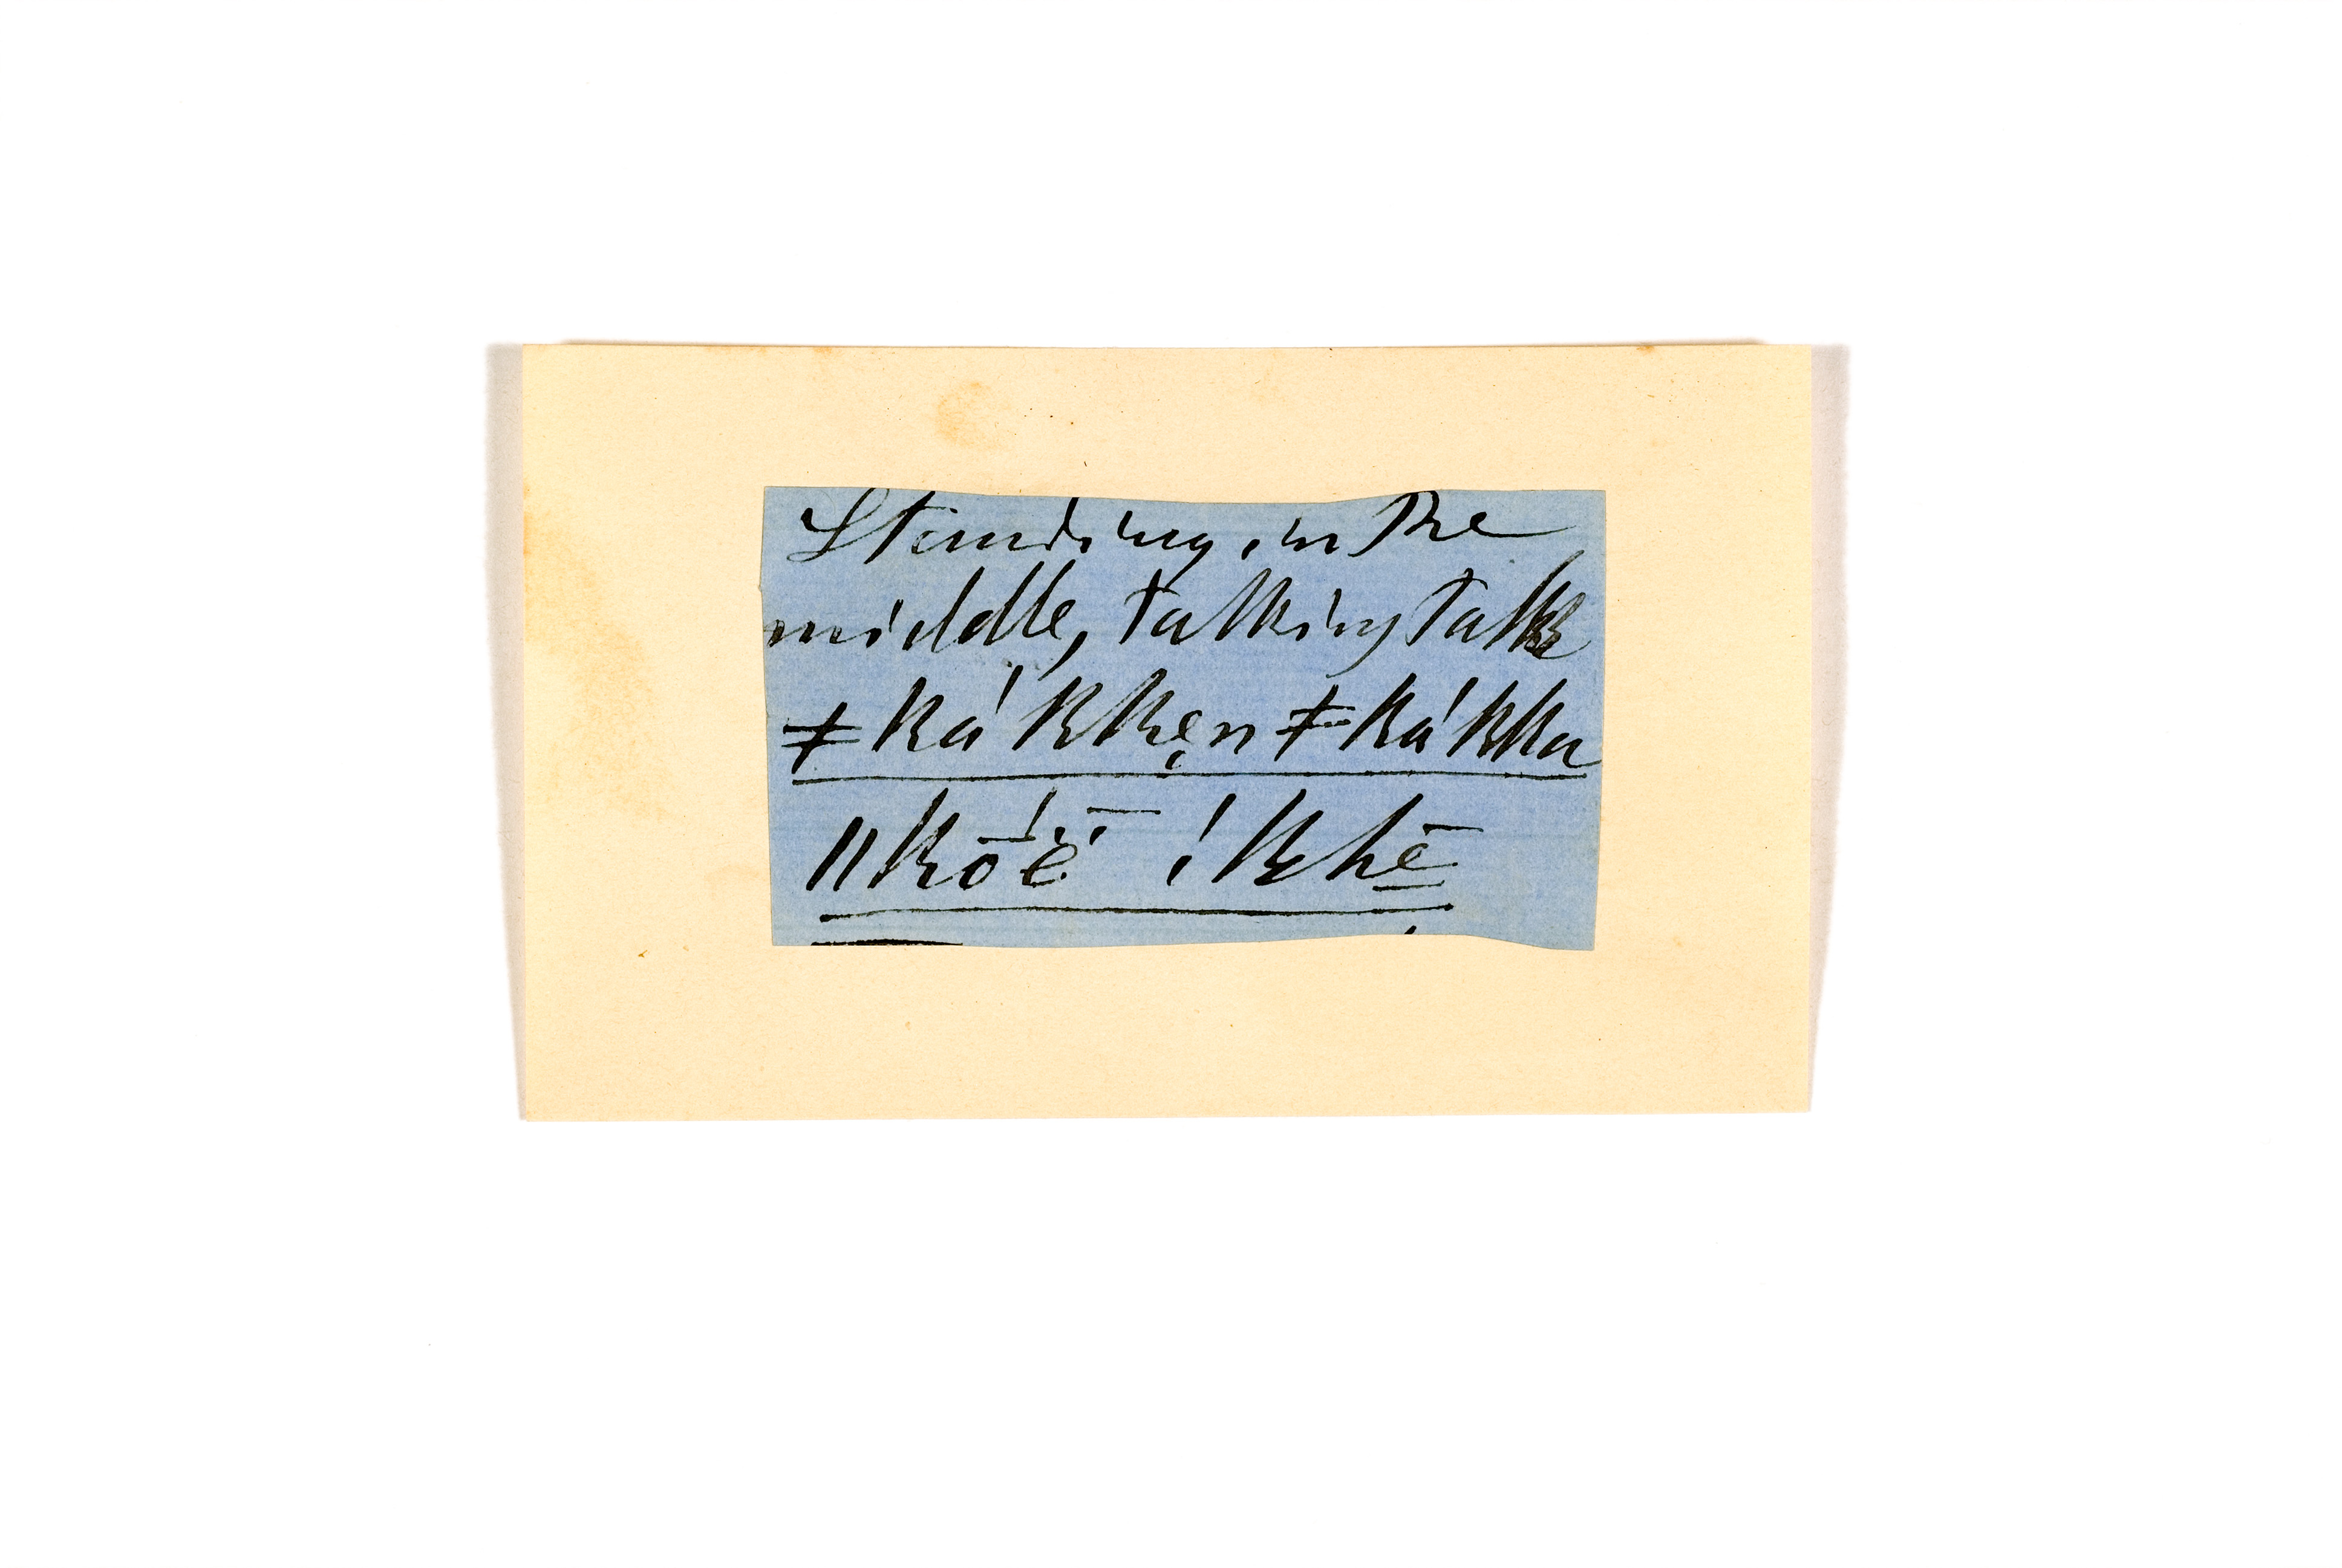 Standing, in the
middle, talking talk
ǂkákkẹn ǂkákka
ǁkṓë̄ ǃkhē̱